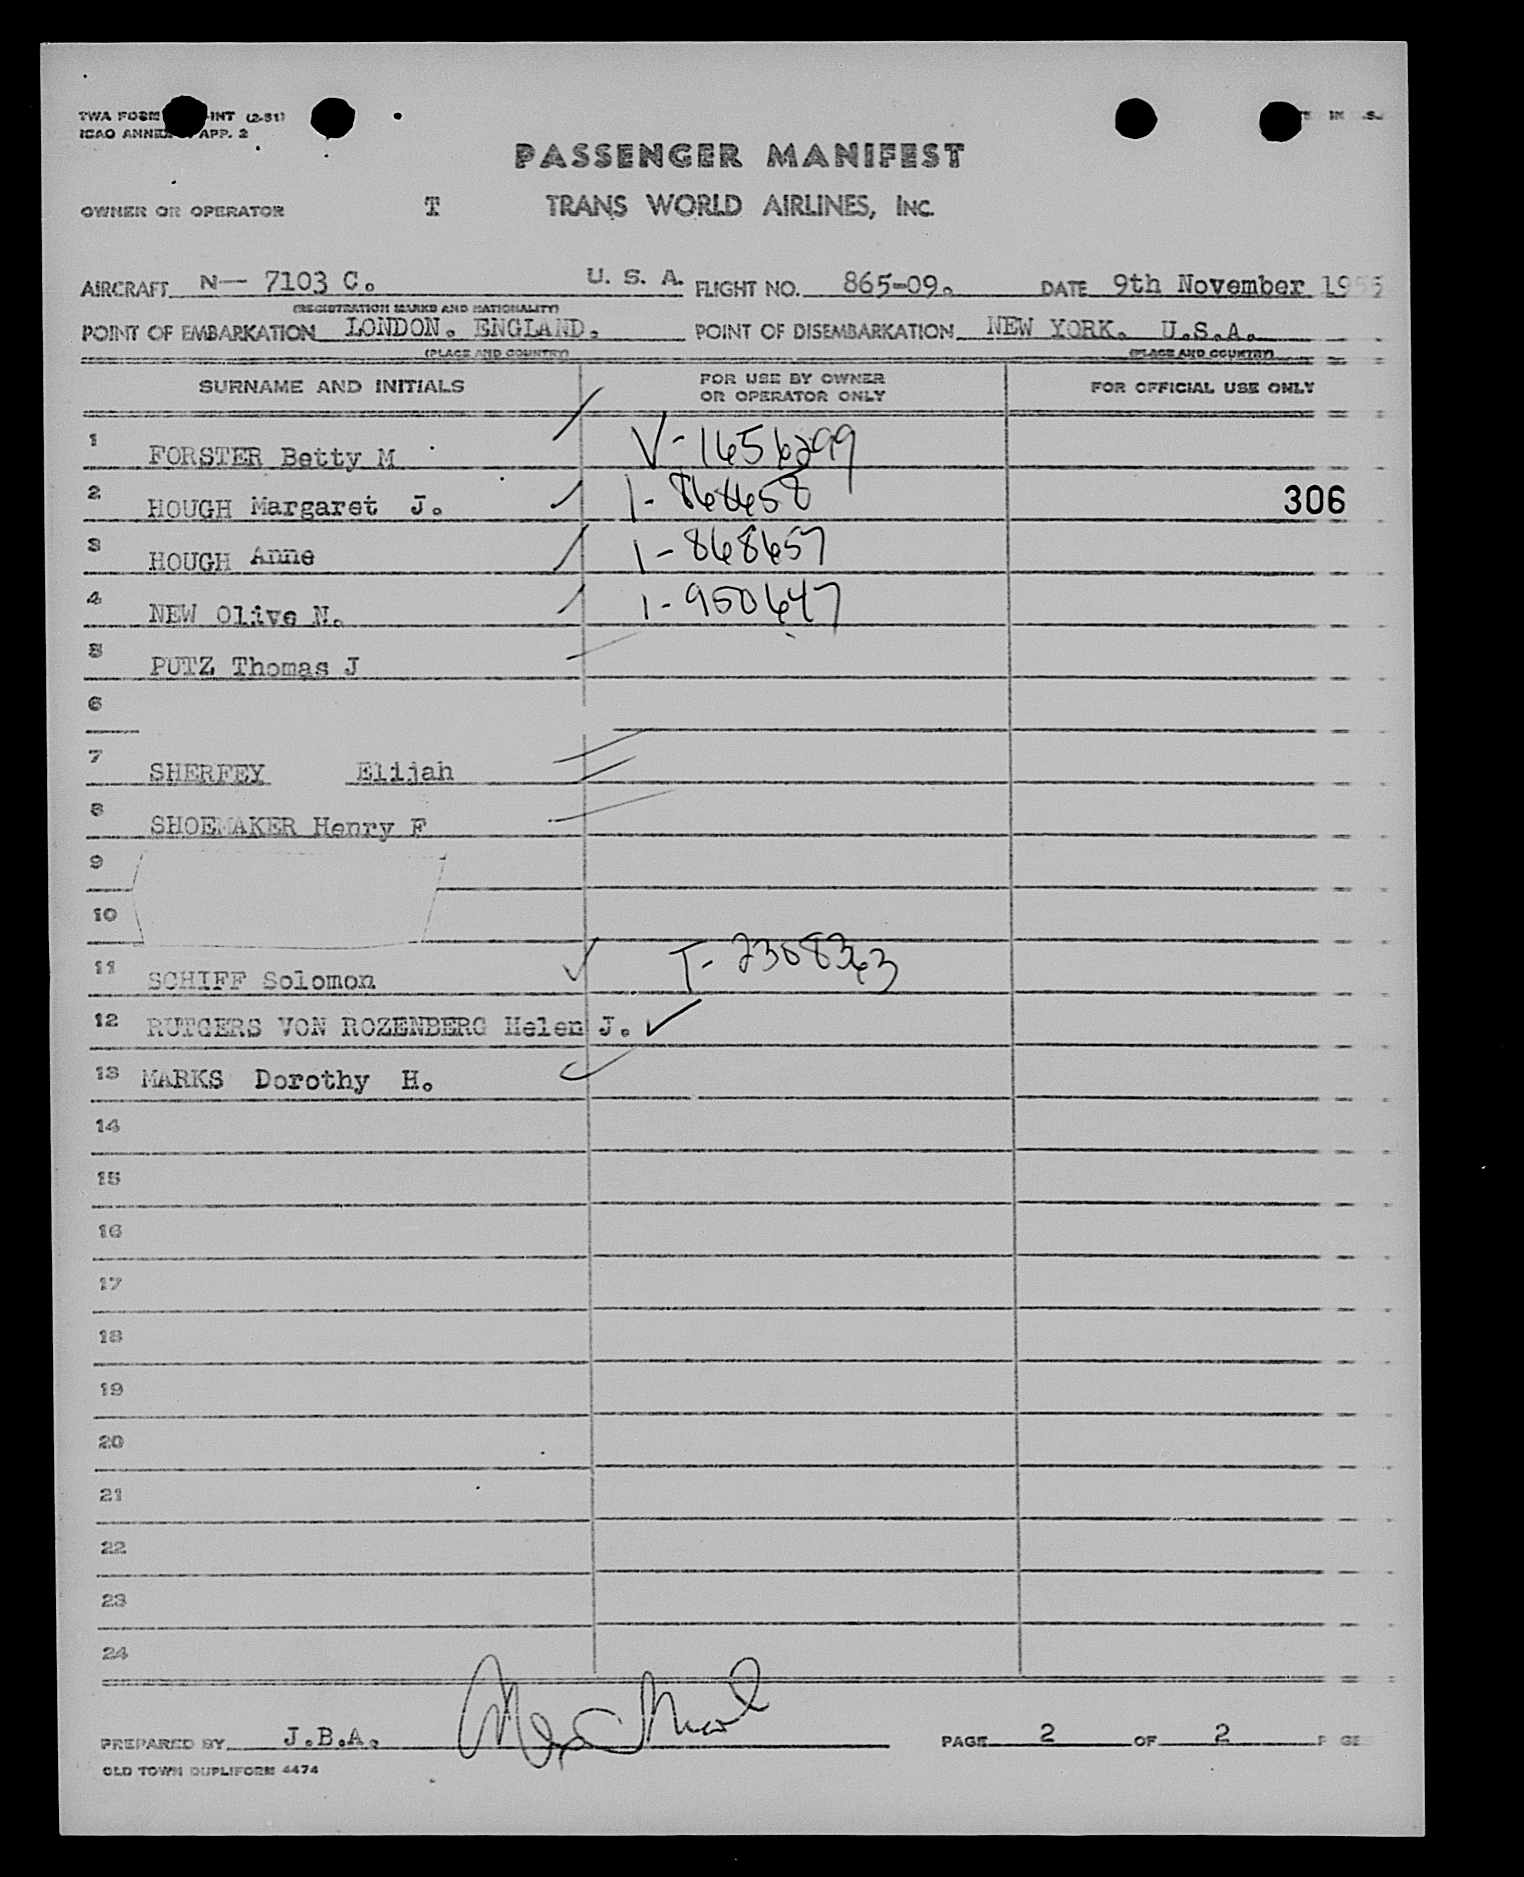 TWA FORM INT (2-51)
ICAO ANNEX APP. 2
IN U.S.
PASSENGER MANIFEST
OWNER OR OPERATOR T TRANS WORLD AIRLINES, INC.
AIRCRAFT N— 7103 C. U. S. A. FLIGHT NO. 865-09. DATE 9th November 1955
(REGISTRATION MARKS AND NATIONALITY)
POINT OF EMBARKATION LONDON. ENGLAND. POINT OF DISEMBARKATION NEW YORK. U.S.A.
(PLACE AND COUNTRY) (PLACE AND COUNTRY)
SURNAME AND INITIALS FOR USE BY OWNER OR OPERATOR ONLY FOR OFFICIAL USE ONLY
1 FORSTER Betty M V-1656299
2 HOUGH Margaret J. 1-868658 306
3 HOUGH Anne 1-868657
4 NEW Olive N. 1-950647
5 PUTZ Thomas J
6
7 SHERFEY Elijah
8 SHOEMAKER Henry F
9
10
11 SCHIFF Solomon T-2308363
12 RUTGERS VON ROZENBERG Helen J.
13 MARKS Dorothy H.
14
15
16
17
18
19
20
21
22
23
24
PREPARED BY J.B.A. PAGE 2 OF 2 PAGES
OLD TOWN DUPLIFORM 4474